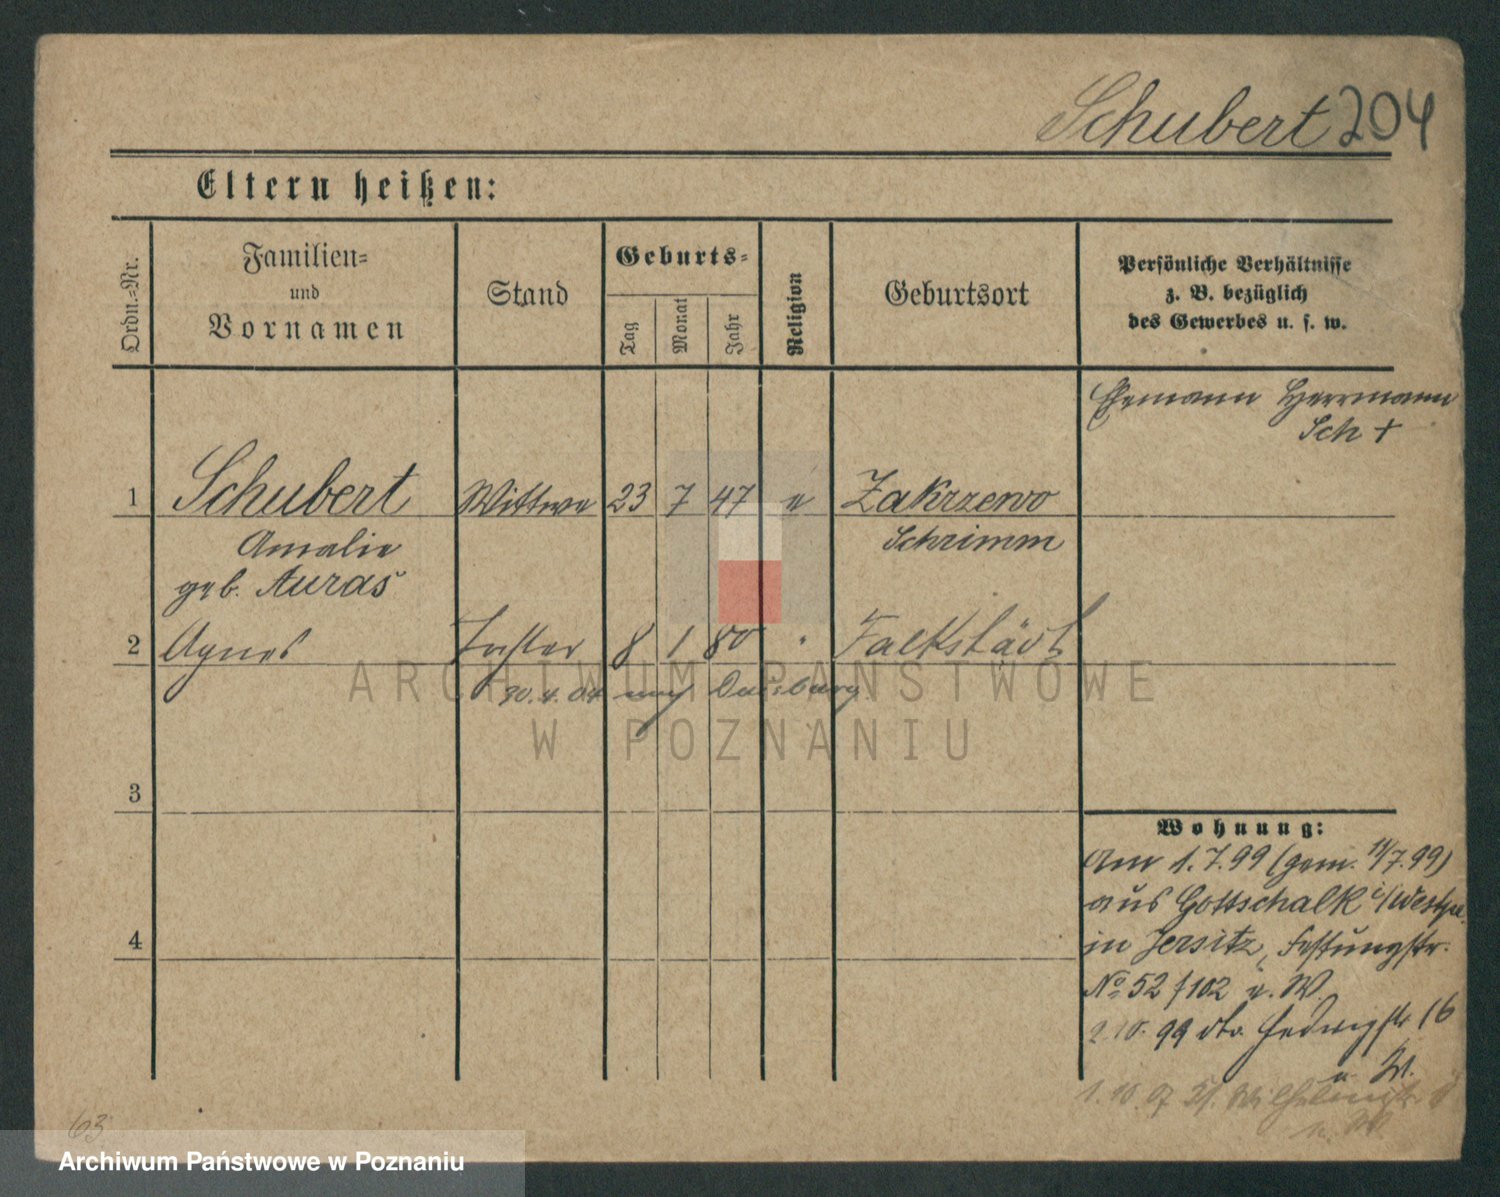 Schubert 204
Eltern heißen:
Ordn.=Nr.
Familien=
und
Vornamen
Stand
Geburts=
Tag
Monat
Jahr
Religion
Geburtsort
Persönliche Verhältnisse
z. B. bezüglich
des Gewerbes u. s. w.
Ehemann Herrmann
Sch +
1 Schubert Wittwe 23 7 47 e Zakrzewo
Amalie Schrimm
geb. Auras
2 Agnes Tochter 8 1 80 " Falkstädt
30.4.04 nach Duisburg
3
4
Wohnung:
Am 1.7.99 (gem. 11/7.99)
aus Gottschalk i/Westpr.
in Jersitz, Festungstr.
No 52/102 u. W.
2.10.99 dto. Hedwigstr 16
u. W.
1.10.07 St. Wilhelmstr 8
u. W.
63
ARCHIWUM PAŃSTWOWE
W POZNANIU
Archiwum Państwowe w Poznaniu